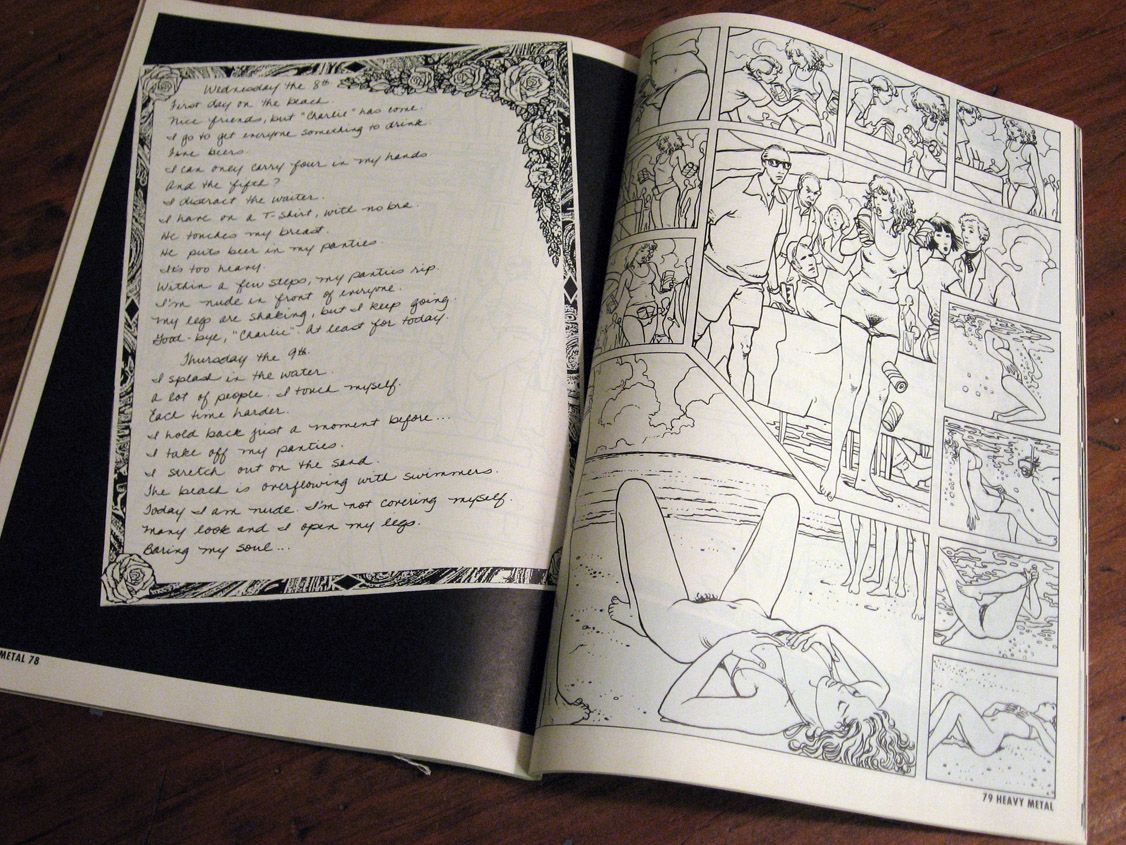 Wednesday the 8th.
First day on the beach.
Nice friends, but "Charlie" has come.
I go to get everyone something to drink.
Five beers.
I can only carry four in my hands.
And the fifth?
I distract the waiter.
I have on a T-shirt, with no bra.
He touches my breast.
He puts beer in my panties.
It's too heavy.
Within a few steps, my panties rip.
I'm nude in front of everyone.
My legs are shaking, but I keep going.
Good-bye, "Charlie". At least for today.
Thursday the 9th.
I splash in the water.
A lot of people. I touch myself.
Each time harder.
I hold back just a moment before...
I take off my panties.
I stretch out on the sand.
The beach is overflowing with swimmers.
Today I am nude. I'm not covering myself.
Many look and I open my legs.
Baring my soul...
METAL 78
79 HEAVY METAL